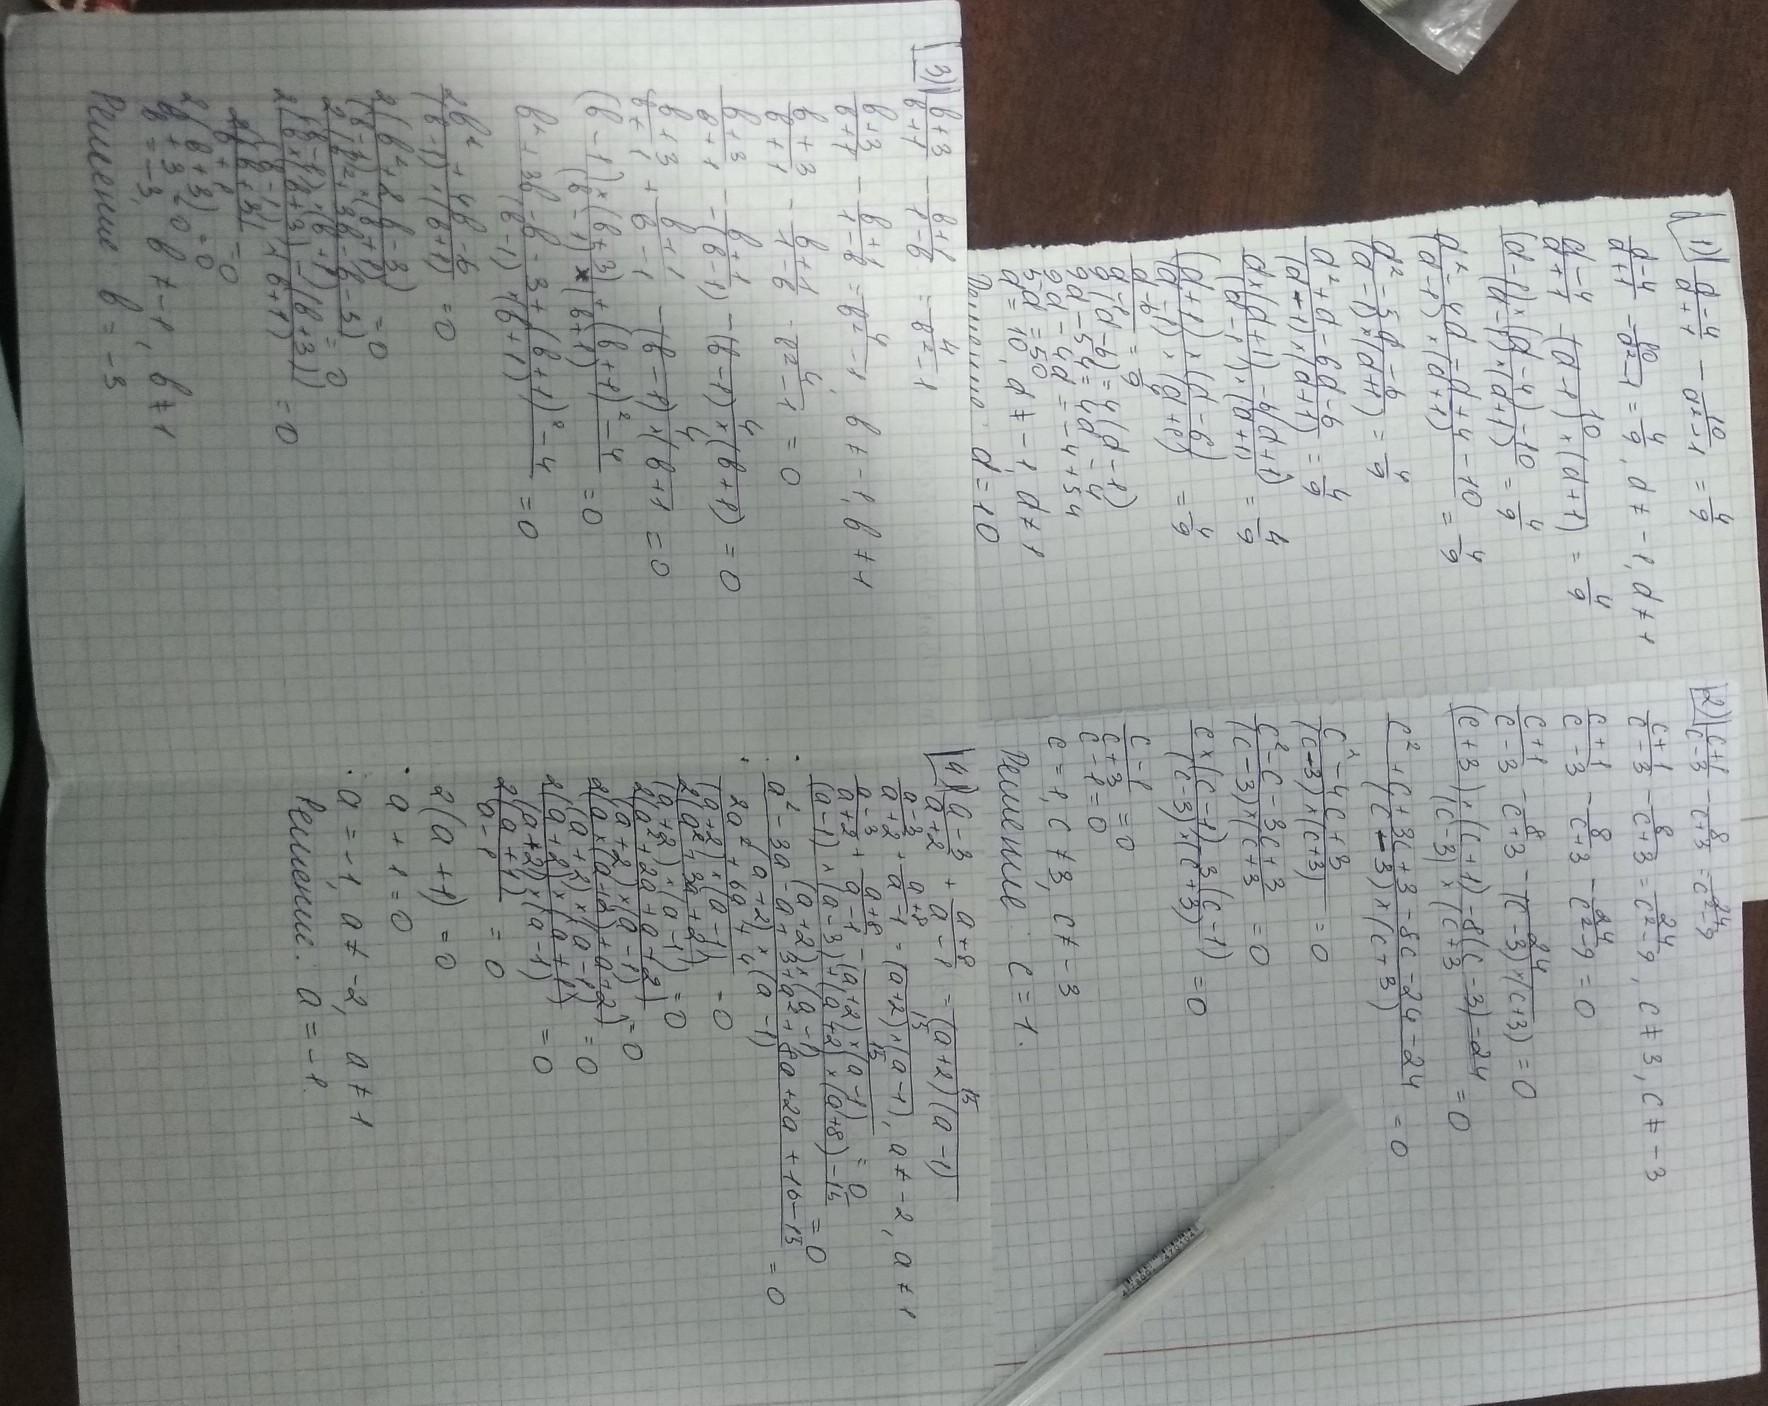 1) (d-4)/(d+1) - 10/(d²-1) = 4/9
(d-4)/(d+1) - 10/(d²-1) = 4/9, d ≠ -1, d ≠ 1
(d-4)/(d+1) - 10/((d-1)×(d+1)) = 4/9
((d-1)×(d-4)-10)/((d-1)×(d+1)) = 4/9
(d²-4d-d+4-10)/((d-1)×(d+1)) = 4/9
(d²-5d-6)/((d-1)×(d+1)) = 4/9
(d²+d-6d-6)/((d-1)×(d+1)) = 4/9
(d×(d+1)-6(d+1))/((d-1)×(d+1)) = 4/9
((d+1)×(d-6))/((d-1)×(d+1)) = 4/9
(d-6)/(d-1) = 4/9
9(d-6)=4(d-1)
9d-54=4d-4
9d-4d=-4+54
5d=50
d=10, d ≠ -1, d ≠ 1
Решение: d=10
2) (c+1)/(c-3) - 8/(c+3) = 24/(c²-9)
(c+1)/(c-3) - 8/(c+3) = 24/(c²-9), c ≠ 3, c ≠ -3
(c+1)/(c-3) - 8/(c+3) - 24/(c²-9) = 0
(c+1)/(c-3) - 8/(c+3) - 24/((c-3)×(c+3)) = 0
((c+3)×(c+1)-8(c-3)-24)/((c-3)×(c+3)) = 0
(c²+c+3c+3-8c-24-24)/((c-3)×(c+3)) = 0
(c²-4c+3)/((c-3)×(c+3)) = 0
(c²-c-3c+3)/((c-3)×(c+3)) = 0
(c×(c-1)-3(c-1))/((c-3)×(c+3)) = 0
(c-1)/(c+3) = 0
c-1=0
c=1, c ≠ 3, c ≠ -3
Решение: c=1.
3) (b+3)/(b+1) - (b+1)/(1-b) = 4/(b²-1)
(b+3)/(b+1) - (b+1)/(1-b) = 4/(b²-1), b ≠ -1, b ≠ 1
(b+3)/(b+1) - (b+1)/(1-b) - 4/(b²-1) = 0
(b+3)/(b+1) - (b+1)/(-(b-1)) - 4/((b-1)×(b+1)) = 0
(b+3)/(b+1) + (b+1)/(b-1) - 4/((b-1)×(b+1)) = 0
((b-1)×(b+3)+(b+1)²-4)/((b-1)×(b+1)) = 0
2b²+4b-6/((b-1)×(b+1)) = 0
2(b²+2b-3)/((b-1)×(b+1)) = 0
2(b²+3b-b-3)/((b-1)×(b+1)) = 0
2(b×(b+3)-(b+3))/((b-1)×(b+1)) = 0
2(b+3)/(b+1) = 0
2(b+3)=0
b+3=0
b=-3, b ≠ -1, b ≠ 1
Решение b=-3
4) (a-3)/(a+2) + (a+8)/(a-1) = 15/((a+2)(a-1))
(a-3)/(a+2) + (a+8)/(a-1) = 15/((a+2)×(a-1)), a ≠ -2, a ≠ 1
(a-3)/(a+2) + (a+8)/(a-1) - 15/((a+2)×(a-1)) = 0
((a-1)×(a-3)+(a+2)×(a+8)-15)/((a+2)×(a-1)) = 0
(a²-3a-a+3+a²+8a+2a+16-15)/((a+2)×(a-1)) = 0
(2a²+6a+4)/((a+2)×(a-1)) = 0
2(a²+3a+2)/((a+2)×(a-1)) = 0
2(a²+2a+a+2)/((a+2)×(a-1)) = 0
2(a×(a+2)+a+2)/((a+2)×(a-1)) = 0
2(a+2)×(a+1)/((a+2)×(a-1)) = 0
2(a+1)/(a-1) = 0
2(a+1)=0
a+1=0
a=-1, a ≠ -2, a ≠ 1
Решение: a=-1.